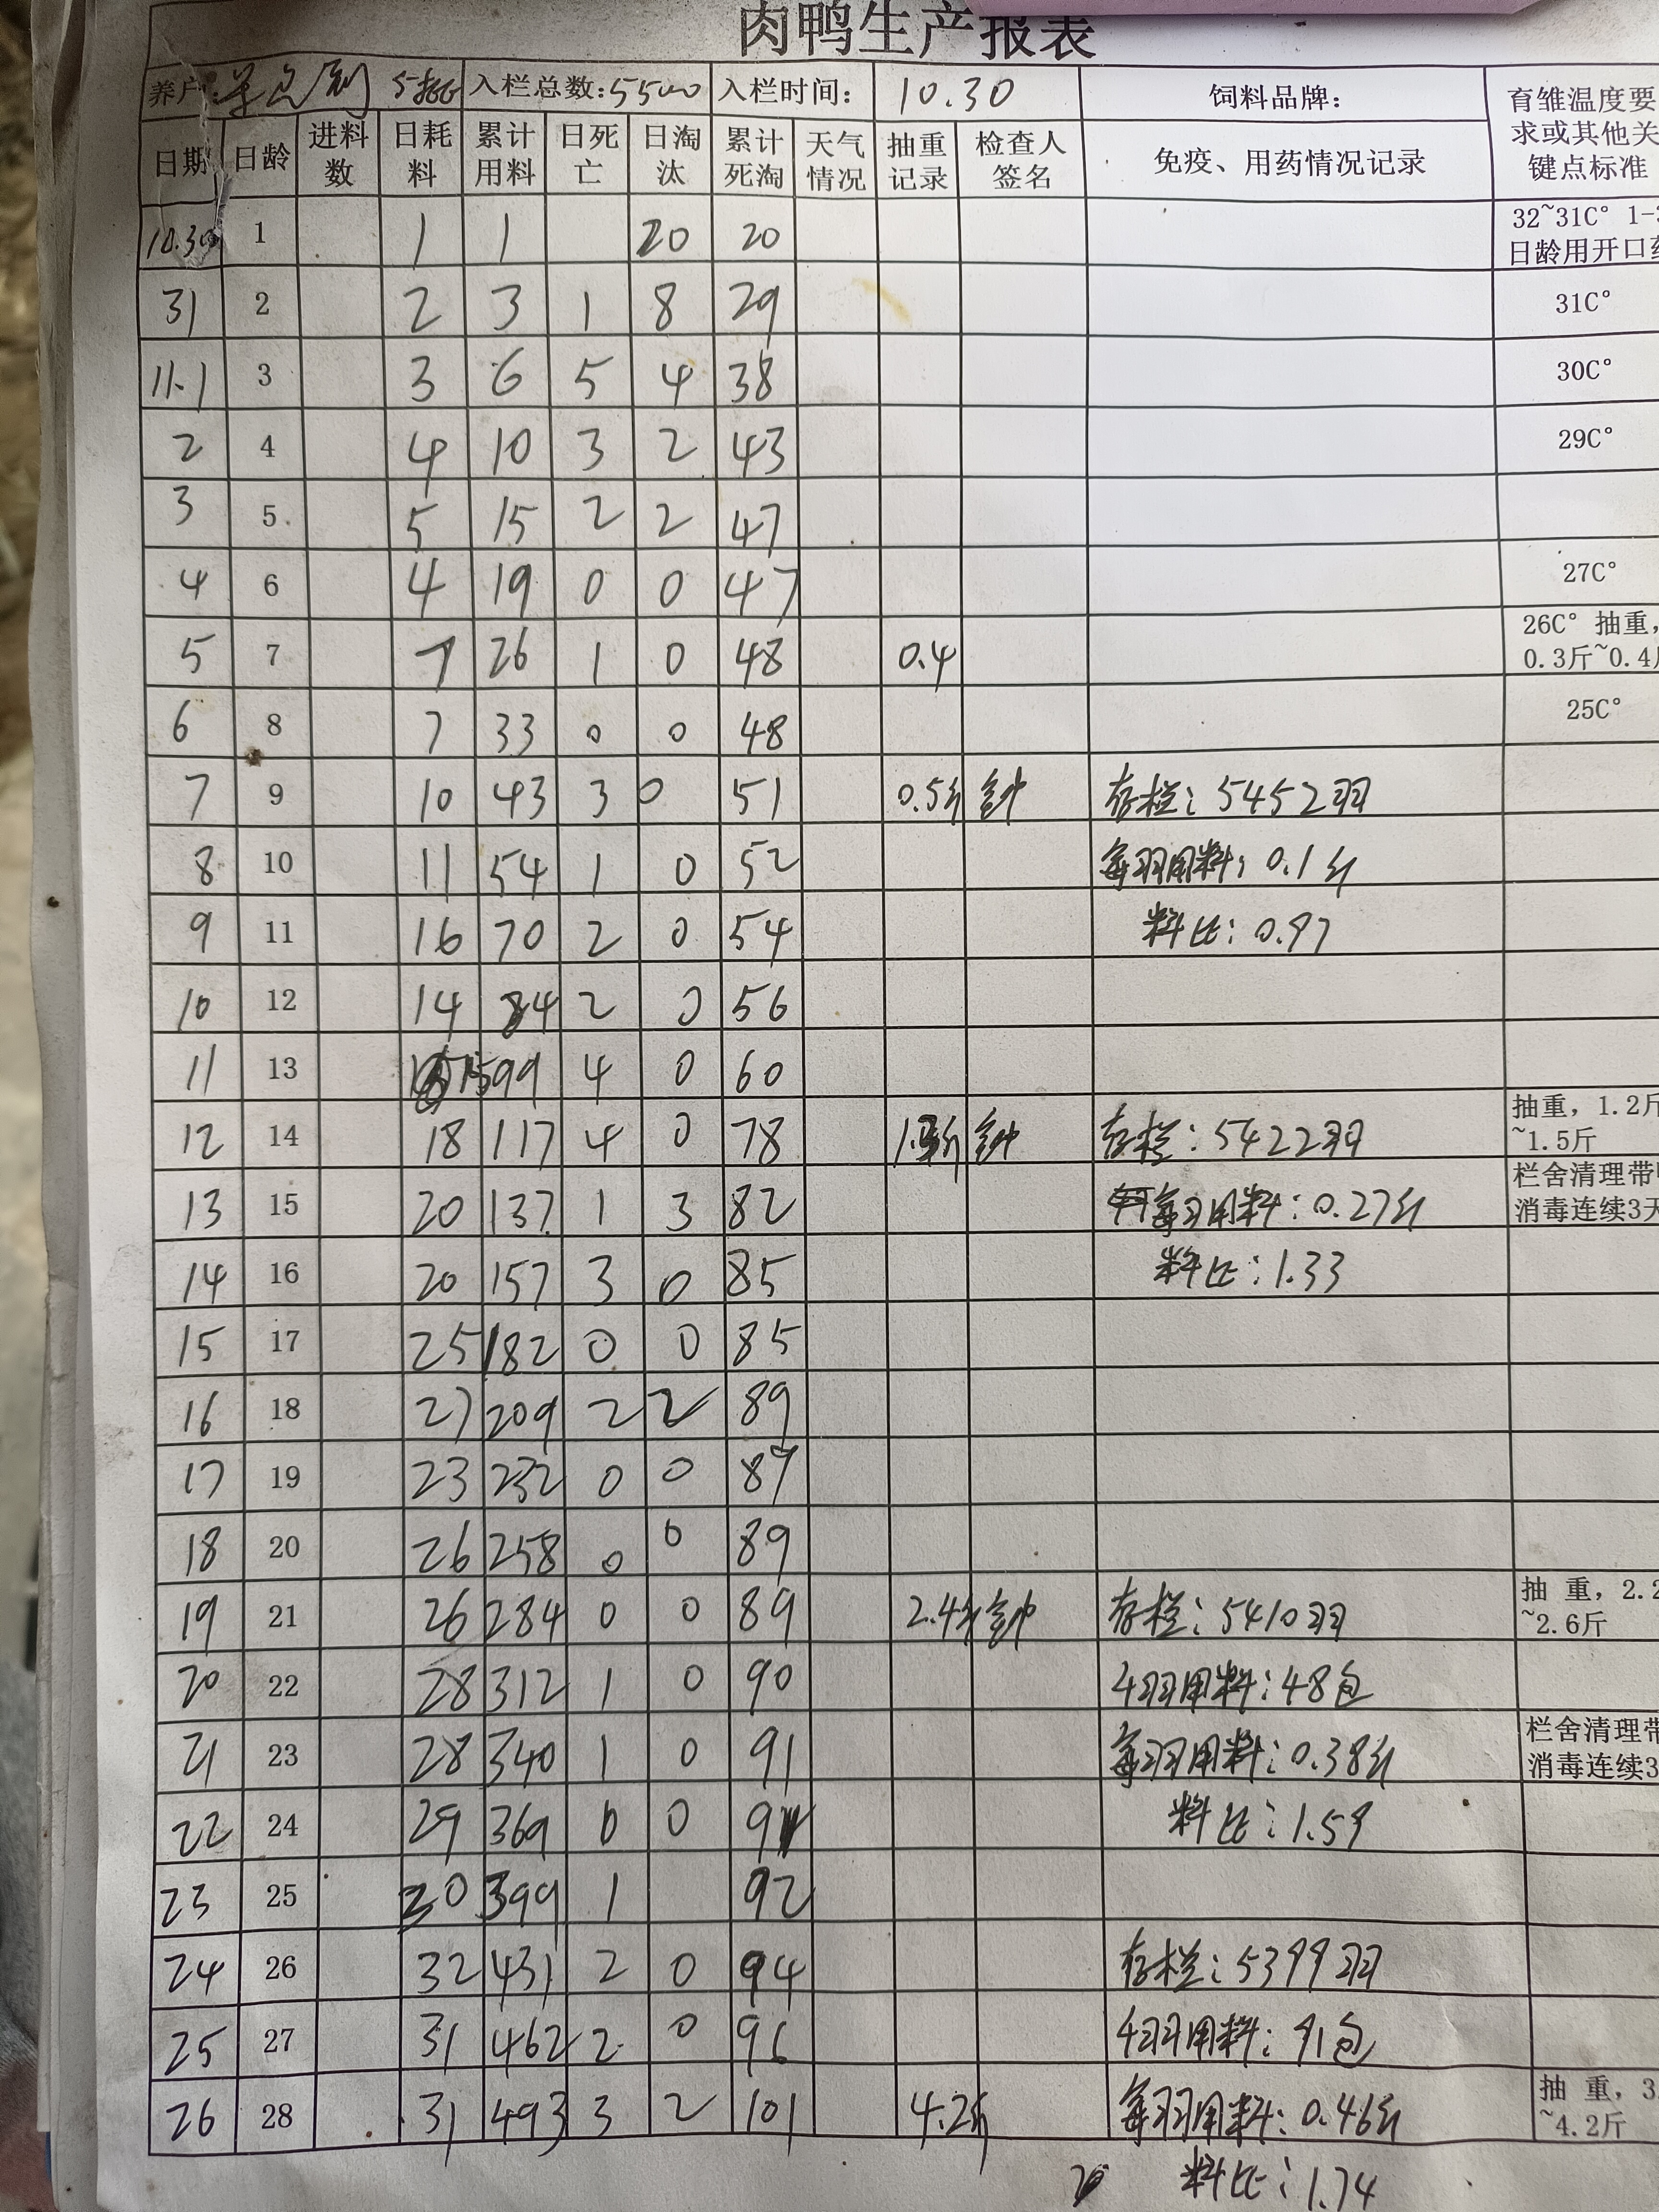 肉鸭生产报表
养户: 入栏总数:5500 入栏时间: 10.30 饲料品牌: 育雏温度要
求或其他关
键点标准
日期 日龄 进料数 日耗料 累计用料 日死亡 日淘汰 累计死淘 天气情况 抽重记录 检查人签名 免疫、用药情况记录
10.30 1 1 1 20 20 32~31C° 1-3
日龄用开口药
31 2 2 3 1 8 29 31C°
11.1 3 3 6 5 4 38 30C°
2 4 4 10 3 2 43 29C°
3 5 5 15 2 2 47
4 6 4 19 0 0 47 27C°
5 7 7 26 1 0 48 0.4 26C° 抽重,
0.3斤~0.4斤
6 8 7 33 0 0 48 25C°
7 9 10 43 3 0 51 0.5斤 存栏: 5452羽
8 10 11 54 1 0 52 每羽用料: 0.1斤
9 11 16 70 2 0 54 料比: 0.97
10 12 14 84 2 0 56
11 13 15 99 4 0 60
12 14 18 117 4 0 78 存栏: 5422羽 抽重, 1.2斤
~1.5斤
13 15 20 137 1 3 82 每羽用料: 0.27斤 栏舍清理带
消毒连续3天
14 16 20 157 3 0 85 料比: 1.33
15 17 25 182 0 0 85
16 18 27 209 2 2 89
17 19 23 232 0 0 89
18 20 26 258 0 0 89
19 21 26 284 0 0 89 2.4斤 存栏: 5410羽 抽 重, 2.2
~2.6斤
20 22 28 312 1 0 90 4羽用料: 48包
21 23 28 340 1 0 91 每羽用料: 0.38斤 栏舍清理带
消毒连续3
22 24 29 369 0 0 91 料比: 1.59
23 25 30 399 1 92
24 26 32 431 2 0 94 存栏: 5399羽
25 27 31 462 2 0 96 4羽用料: 91包
26 28 31 493 3 2 101 4.2斤 每羽用料: 0.46斤 抽 重, 3.
~4.2斤
料比: 1.74